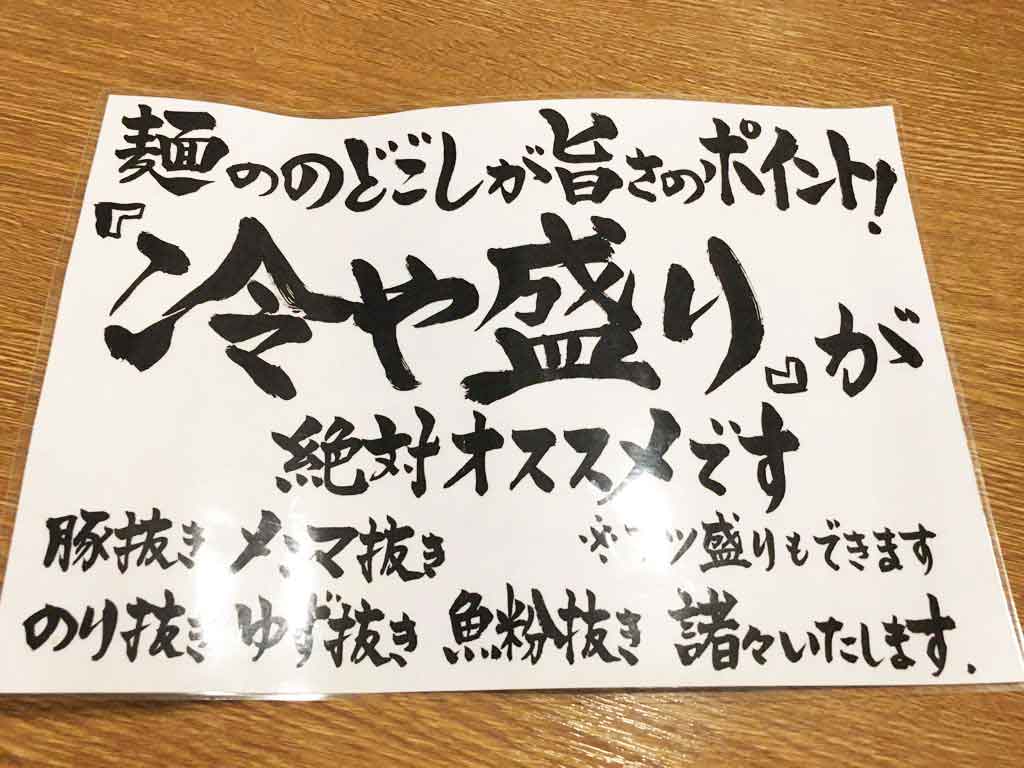 麺ののどごしが旨さのポイント!
『冷や盛り』が
絶対オススメです
豚抜き メンマ抜き ※アツ盛りもできます
のり抜き ゆず抜き 魚粉抜き 諸々いたします.